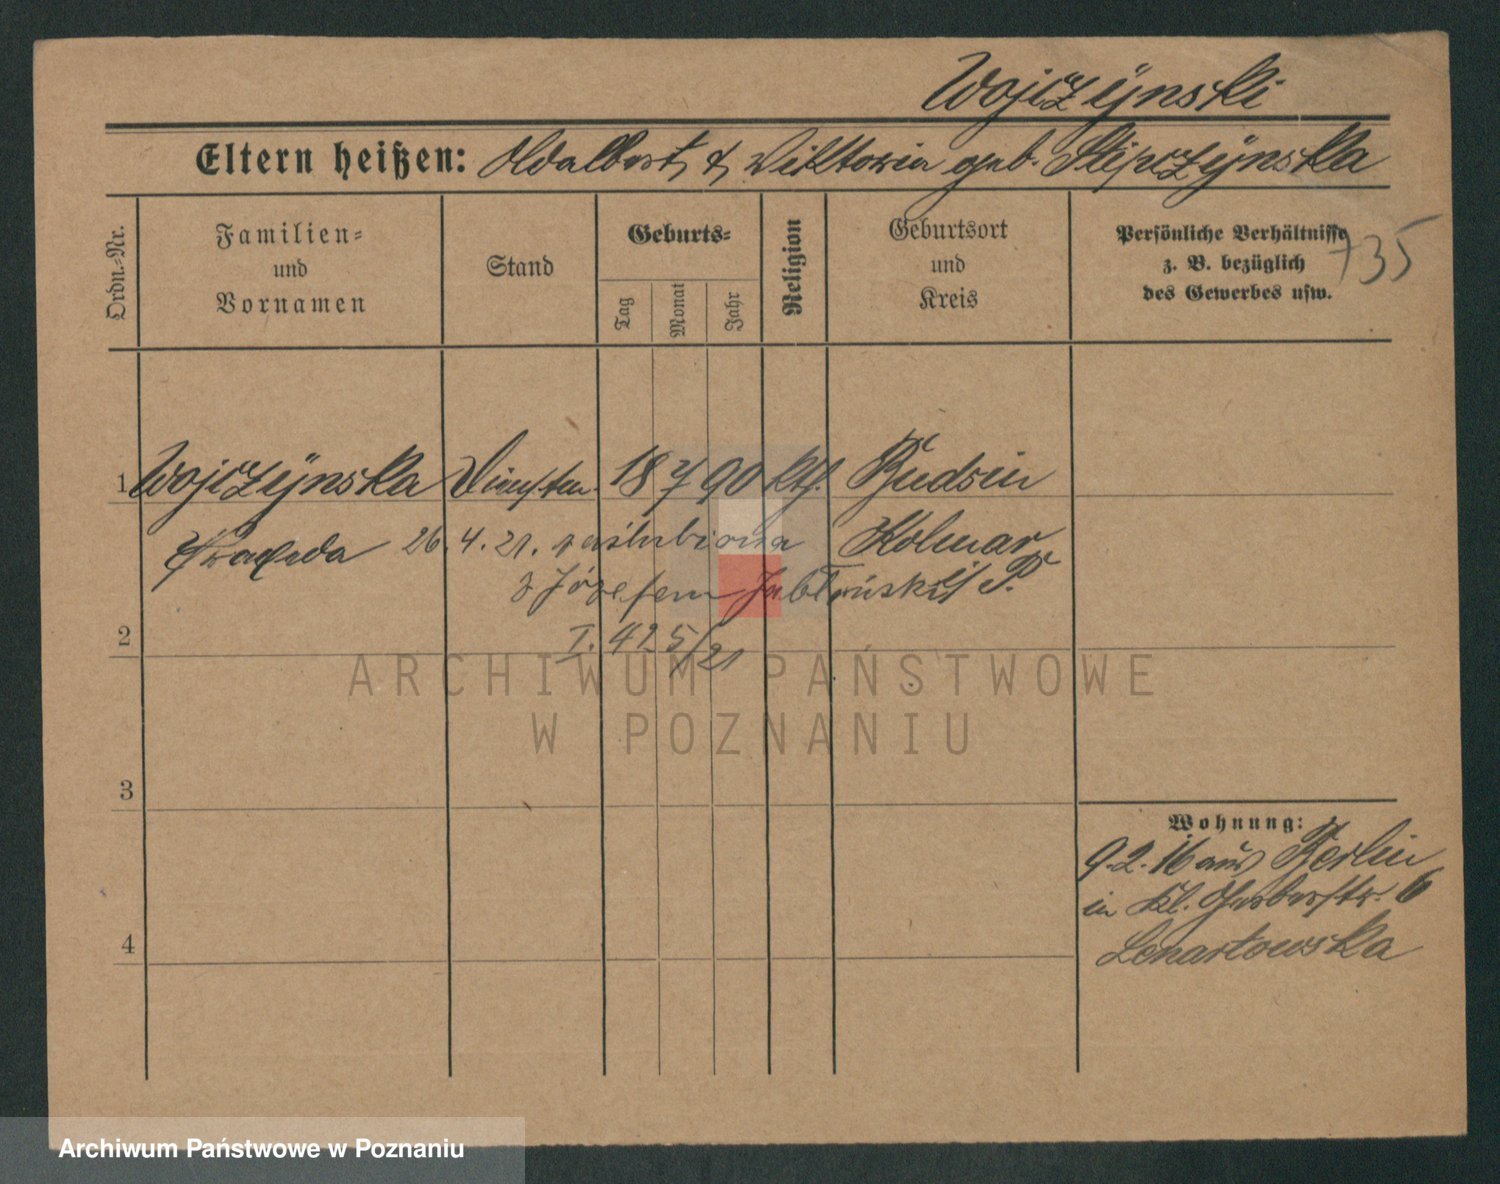 Wojczÿnski
Eltern heißen: Adalbert & Viktoria geb. Stipczÿnska
Ordn.-Nr.
Familien-
und
Vornamen
Stand
Geburts-
Tag
Monat
Jahr
Religion
Geburtsort
und
Kreis
Persönliche Verhältnisse
z. B. bezüglich
des Gewerbes usw.
735
1 Wojczÿnska 18 7 90 kth. Budsin
Praxeda 26.4.21. zaślubiona Kolmar
z Józefem Jabłoński i/P.
I. 425/21
2
3
4
Wohnung:
9.2.16 aus Berlin
in Kl. Gerberstr. 6
Lenartowska
ARCHIWUM PAŃSTWOWE
W POZNANIU
Archiwum Państwowe w Poznaniu